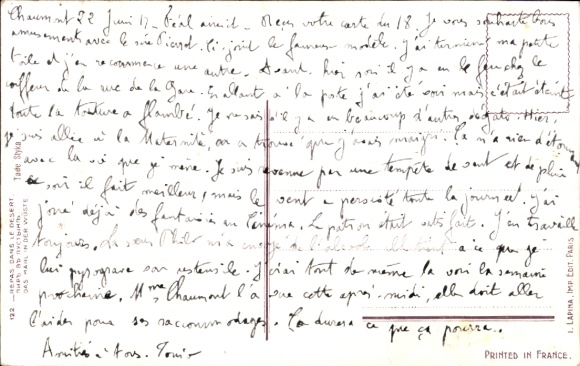 Chaumont 22 Juin 17. Réal aimé. Reçu votre carte du 18. Je vous souhaite bon
amusement avec le Ci joint le fameux modèle. j'ai terminé ma petite
toile et j'en recommence une autre. Avant hier soir il y a eu le feu chez le
coiffeur de la rue de la Gare. En allant à la poste j'ai été voir mais c'était éteint
toute la toiture a flambé. Je ne sais s'il y a eu beaucoup d'autres dégats. Hier
je suis allée à la Maternité, on a trouvé que j'avais maigri. Ça n'a rien d'étonnant
avec la vie que je mène. Je suis revenue par une tempête de vent et de pluie
Ce soir il fait meilleur, mais le vent a persisté toute la journée. j'ai
joué déjà des fantaisies au Cinéma. Le patron était satisfait. J'en travaille
toujours. La sœur à ce que je
lui pyrograve son ustensile. J'irai tout de même la voir la semaine
prochaine. Mme Chaumont l'a vue cette après-midi, elle doit aller
l'aider pour ses raccommodages. Ça durera ce que ça pourra.
Amitiés à tous.
Tade Styka
122 — REPAS DANS LE DESERT
DAS MAHL IN DER WÜSTE
I. LAPINA, IMP. EDIT. PARIS
PRINTED IN FRANCE.